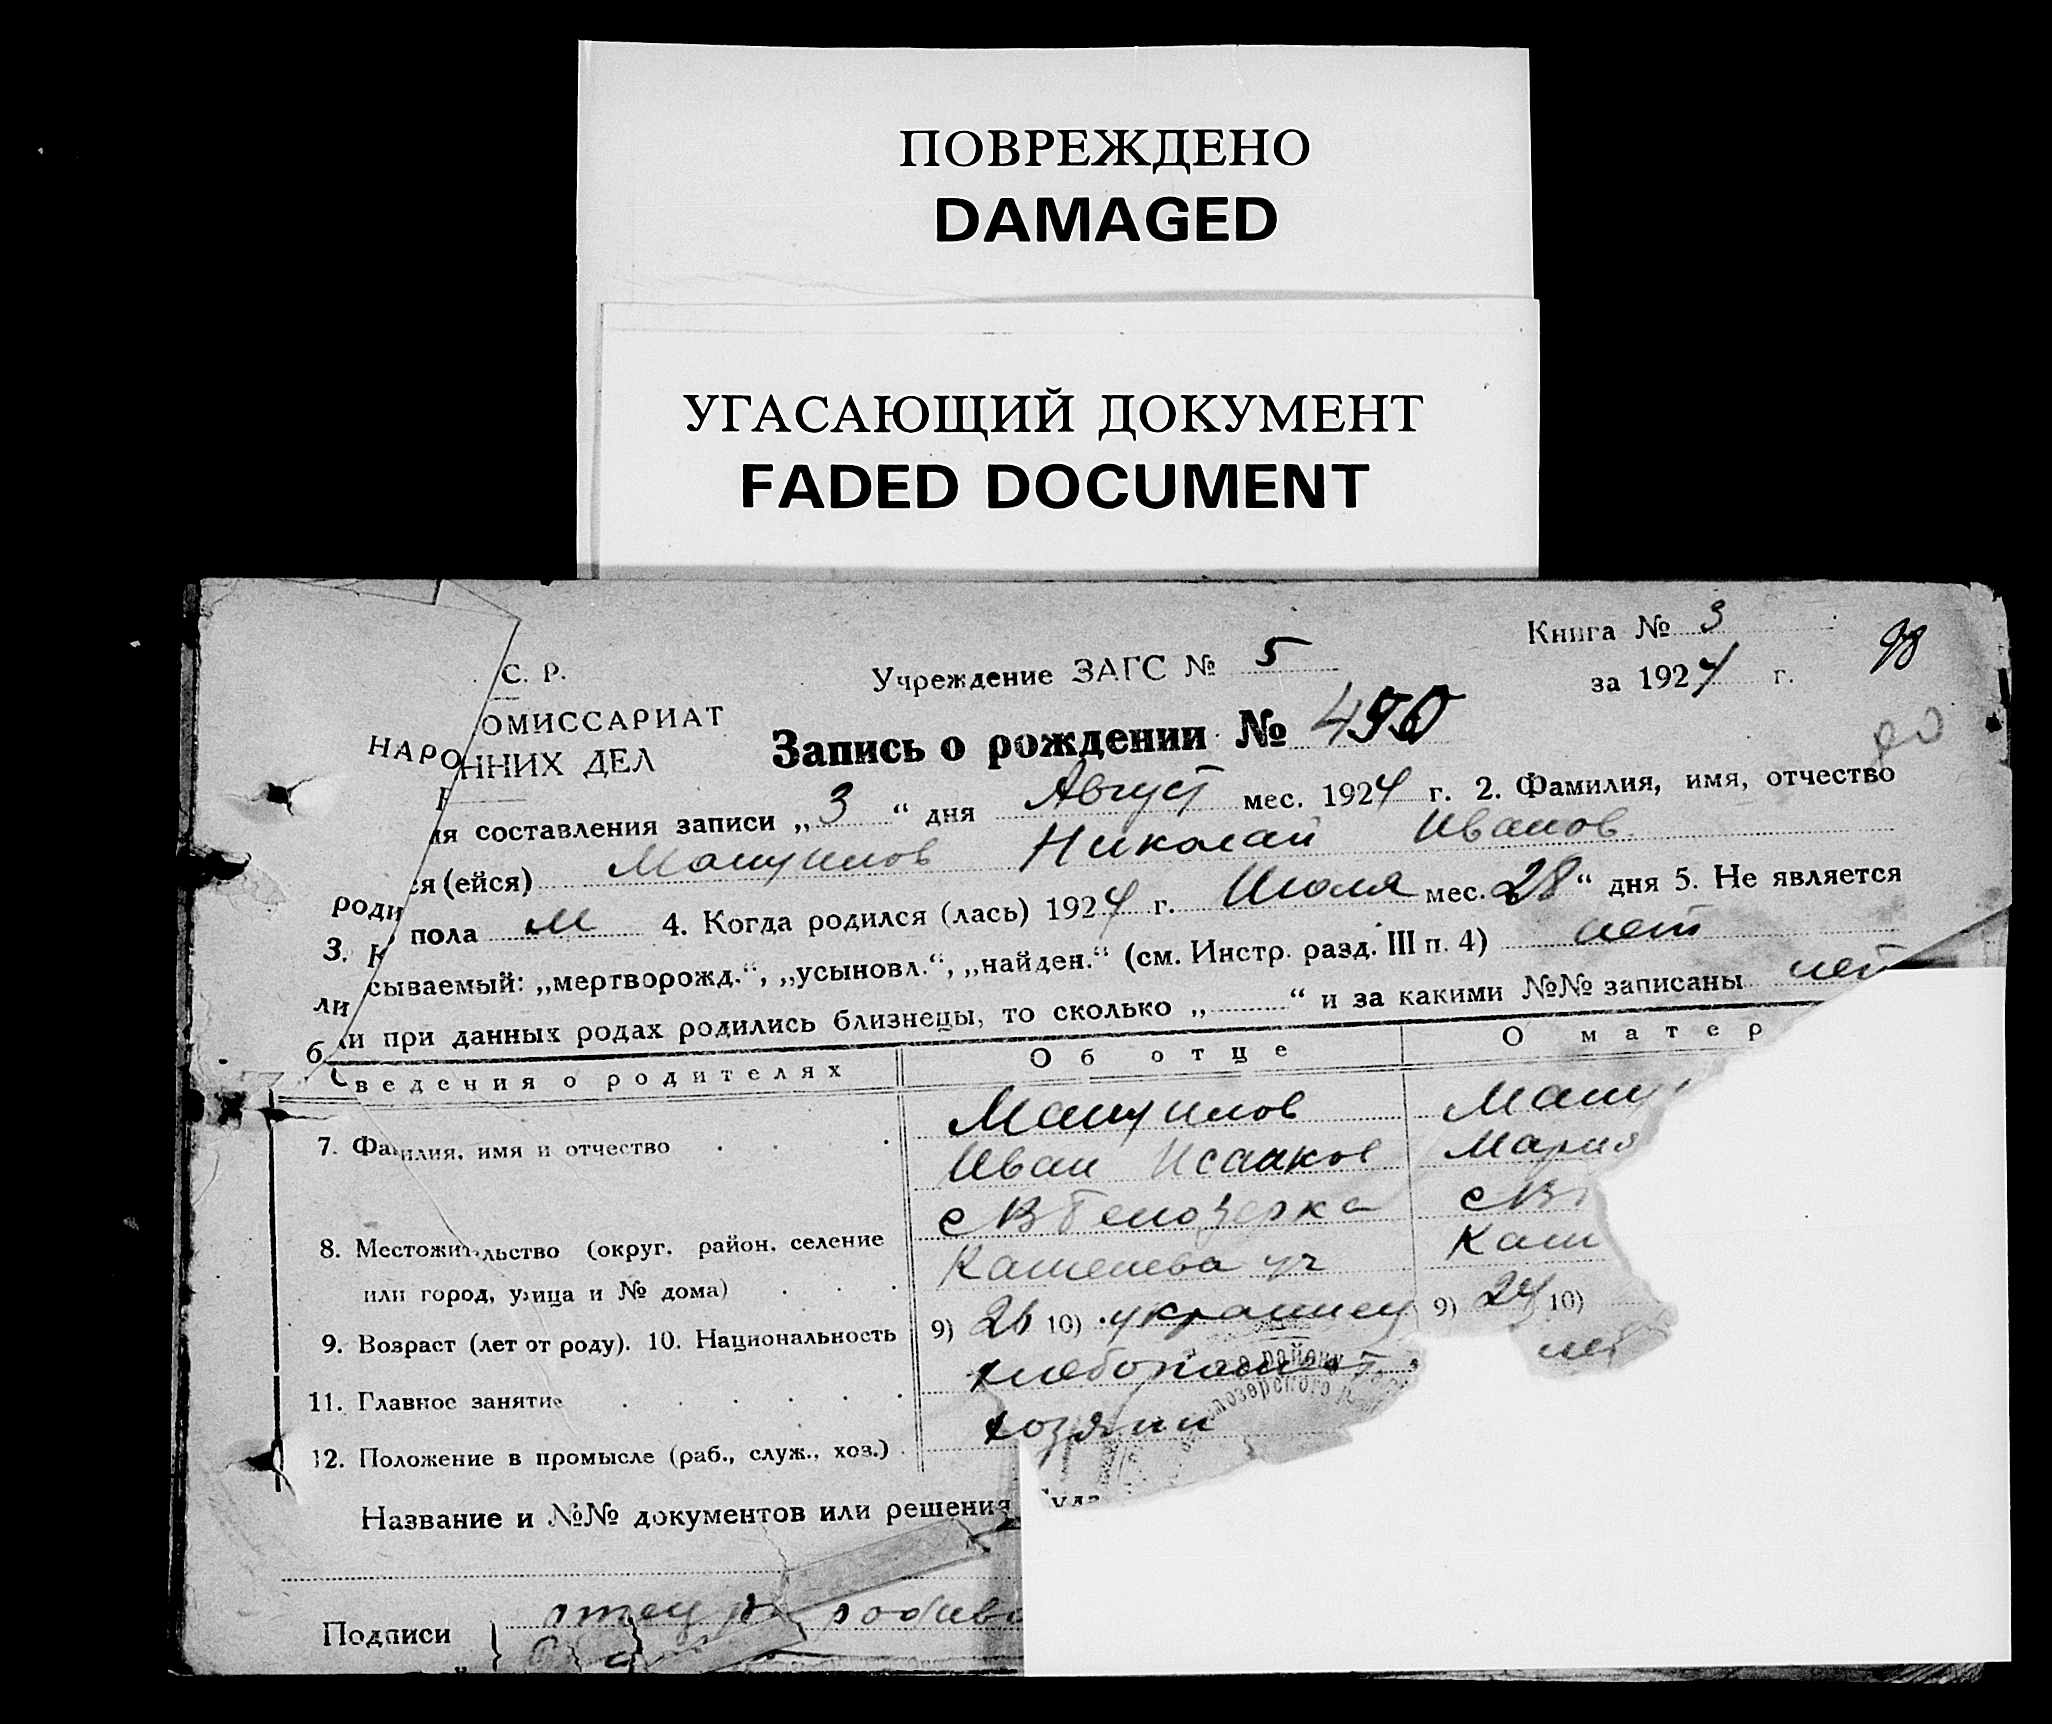 ПОВРЕЖДЕНО
DAMAGED
УГАСАЮЩИЙ ДОКУМЕНТ
FADED DOCUMENT
Книга № 3
98
С. Р.
Учреждение ЗАГС № 5
за 1924 г.
НАРО ОМИССАРИАТ
ННИХ ДЕЛ
Запись о рождении № 450
ия составления записи „3“ дня Август мес. 1924 г. 2. Фамилия, имя, отчество
роди ся (ейся) Мошуилов Николай Иванов
3. К пола м 4. Когда родился (лась) 1924 г. Июля мес. 28“ дня 5. Не является
ли сываемый: „мертворожд.“, „усыновл.“, „найден.“ (см. Инстр. разд. III п. 4) нет
6 ли при данных родах родились близнецы, то сколько „ “ и за какими №№ записаны нет
Сведения о родителях Об отце О матер
7. Фамилия, имя и отчество
Иван Исааков Мария
8. Местожительство (округ, район, селение с В Белозерка с В
или город, улица и № дома)
9. Возраст (лет от роду). 10. Национальность 9) 26 10) украинец 9) 24 10)
11. Главное занятие хлебопашест
12. Положение в промысле (раб., служ., хоз.) хозяин
району
лозерского
Название и №№ документов или решения Суда
отец
Подписи